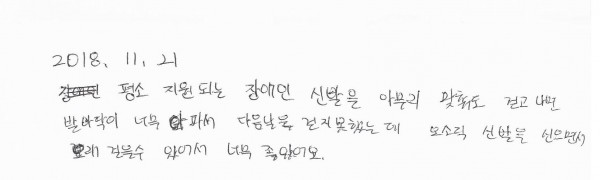 2018. 11. 21
평소 지원되는 장애인 신발을 아무리 맞춰도 걷고 나면
발바닥이 너무 아파서 다음날을 걷지못했는데 오소릭 신발을 신으면서
오래 걸을수 있어서 너무 좋았어요.